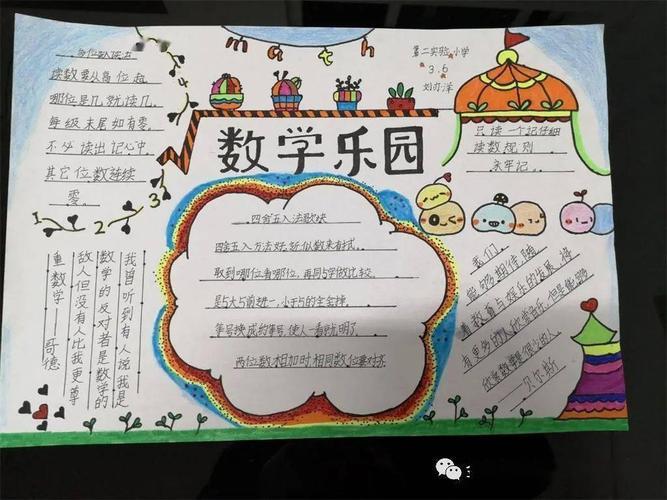 math
第二实验小学
3.6
数学乐园
多位数读法
读数要从高位起
哪位是几就读几
每级末尾如有零
不必读出记心中
其它位数连续
零
4
3
2
1
只读一个记仔细
读数规则
永牢记
四舍五入法歌诀
四舍五入方法好,近似数来有我
取到哪位看哪位,再同5字做比较
是5大5前进一,小于5的全舍掉
等号换成约等号,使人一看就明了
两位数相加时相同数位要对齐
我曾听到有人说我是
数学的反对者是数学的
敌人但没有人比我更尊
重数学——哥德
我们
能够期待随
着教育与娱乐的发展将
有更多的人欣赏音乐,但是能够
欣赏数学
的人
贝尔斯